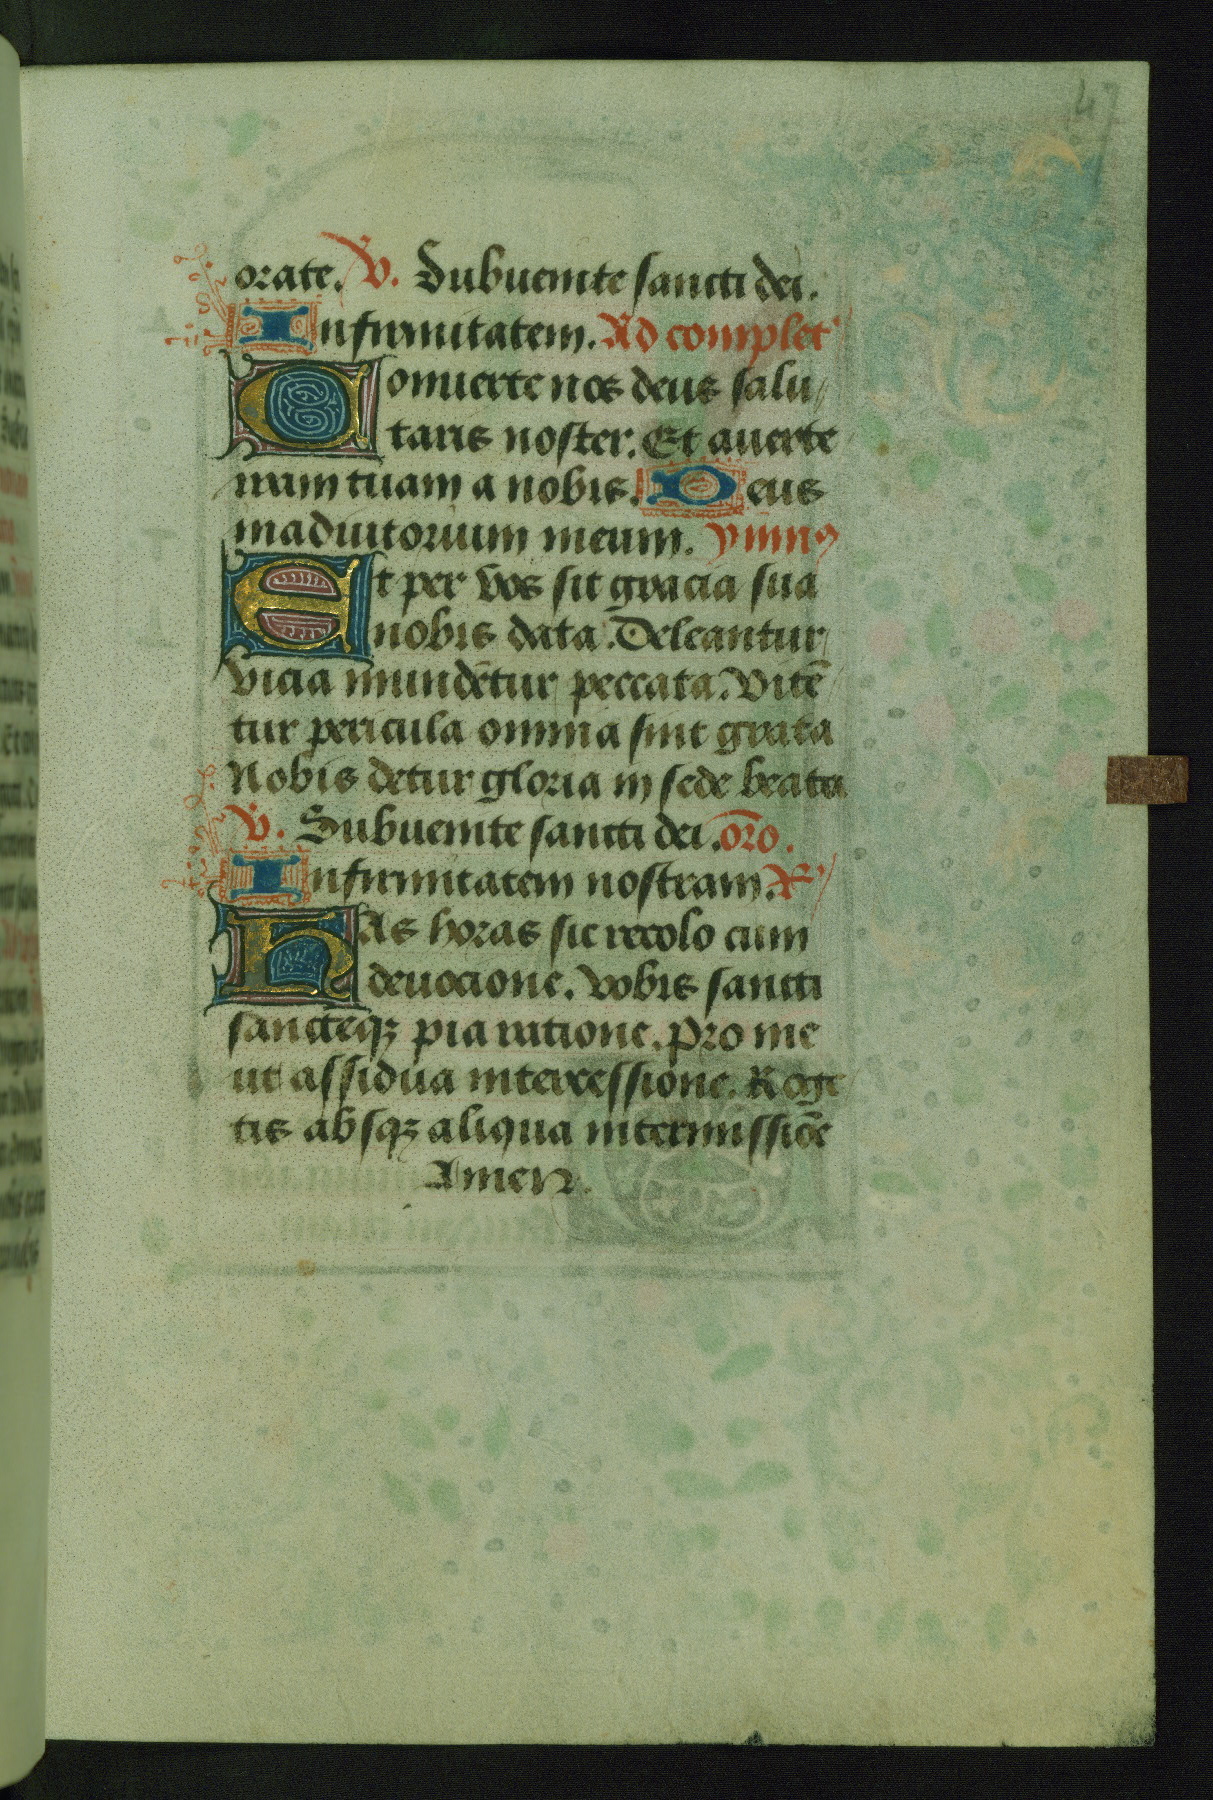 47
orate. V. Subuenite sancti dei.
Infirmitatem. Ad complet'
Conuerte nos deus salu
taris noster. Et auerte
iram tuam a nobis. Deus
in adiutorium meum. ymnꝰ
Et per vos sit gracia sua
nobis data. Deleantur
vicia mundētur peccata. Vitē
tur pericula omnia sint grata
Nobis detur gloria in sede beata
V. Subuenite sancti dei. oro.
Infirmitatem nostram.
HAs horas sic recolo cum
deuocione. Vobis sancti
sancteqꝫ pia ratione. Pro me
ut assidua intercessione. Roge
tis absqꝫ aliqua intermissiōe
Amen.